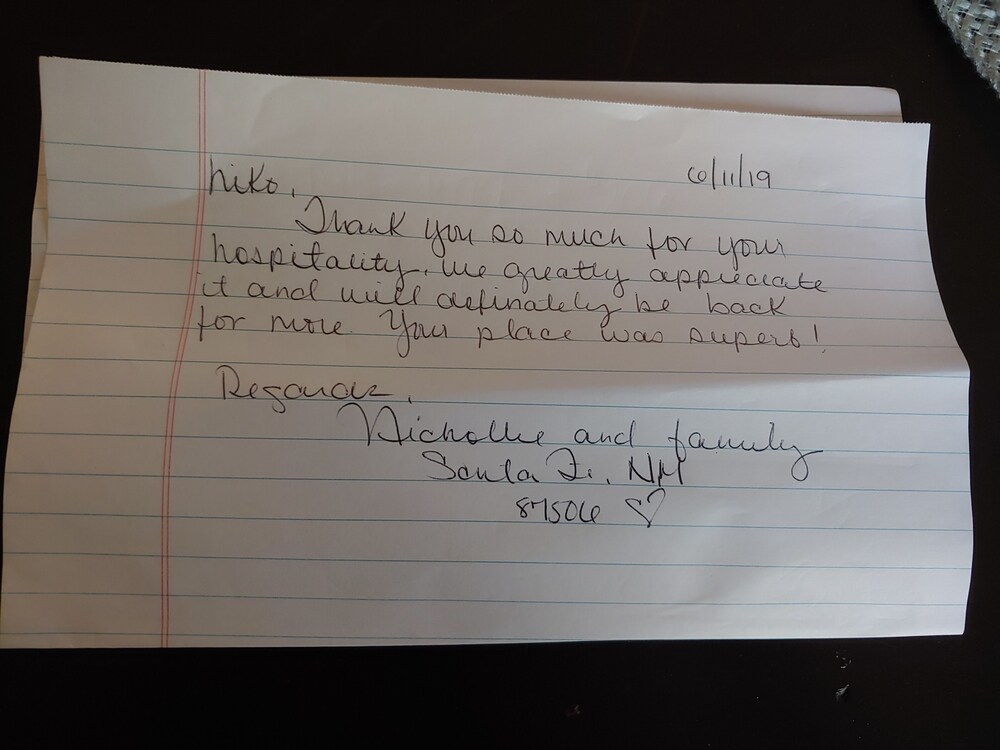 Niko, 6/11/19
Thank you so much for your
hospitality. We greatly appreciate
it and will definately be back
for more. Your place was superb!
Regards,
Nichole and family
Santa Fe, NM
87506 ♡